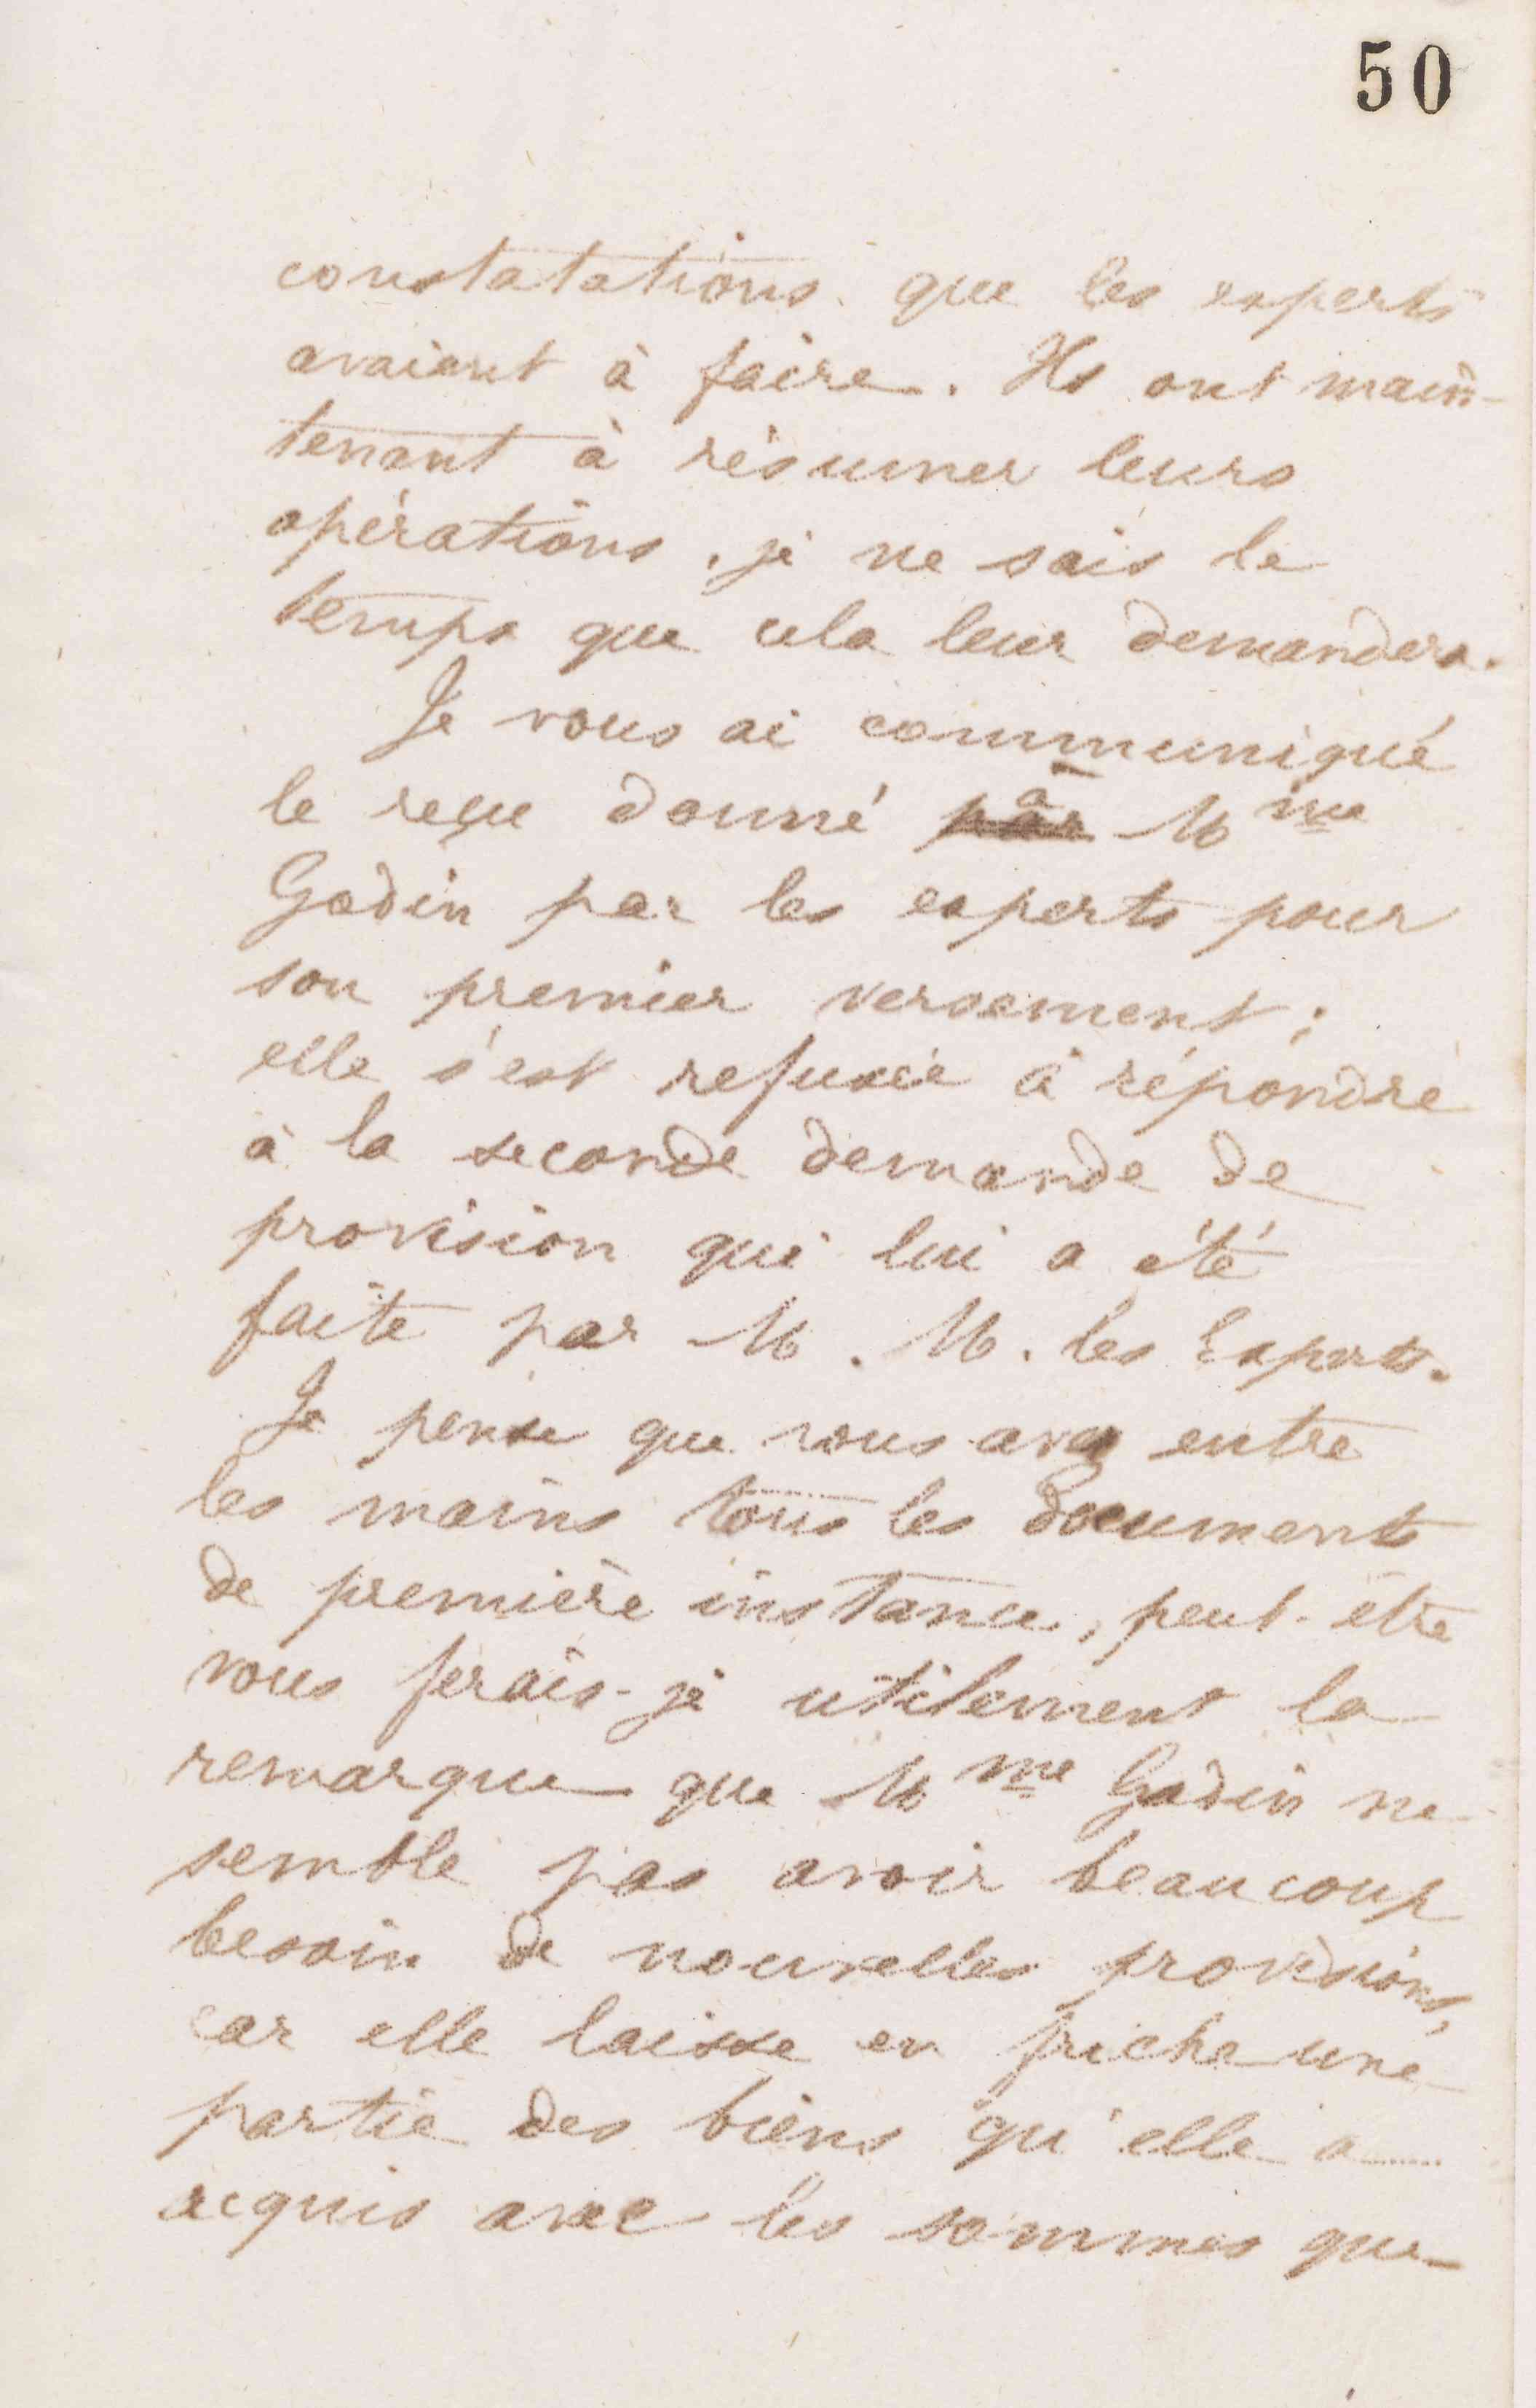 50
constatations que les experts
avaient à faire. Ils ont main-
tenant à résumer leurs
opérations, je ne sais le
temps que cela leur demandera.
Je vous ai communiqué
le reçu donné par à Mme
Godin par les experts pour
son premier versement ;
elle s'est refusée à répondre
à la seconde demande de
provision qui lui a été
faite par M. M. les Experts.
Je pense que vous avez entre
les mains tous les documents
de première instance, peut-être
vous ferais-je utilement la
remarque que Mme Godin ne
semble pas avoir beaucoup
besoin de nouvelles provisions,
car elle laisse en friche une
partie des biens qu'elle a
acquis avec les sommes que